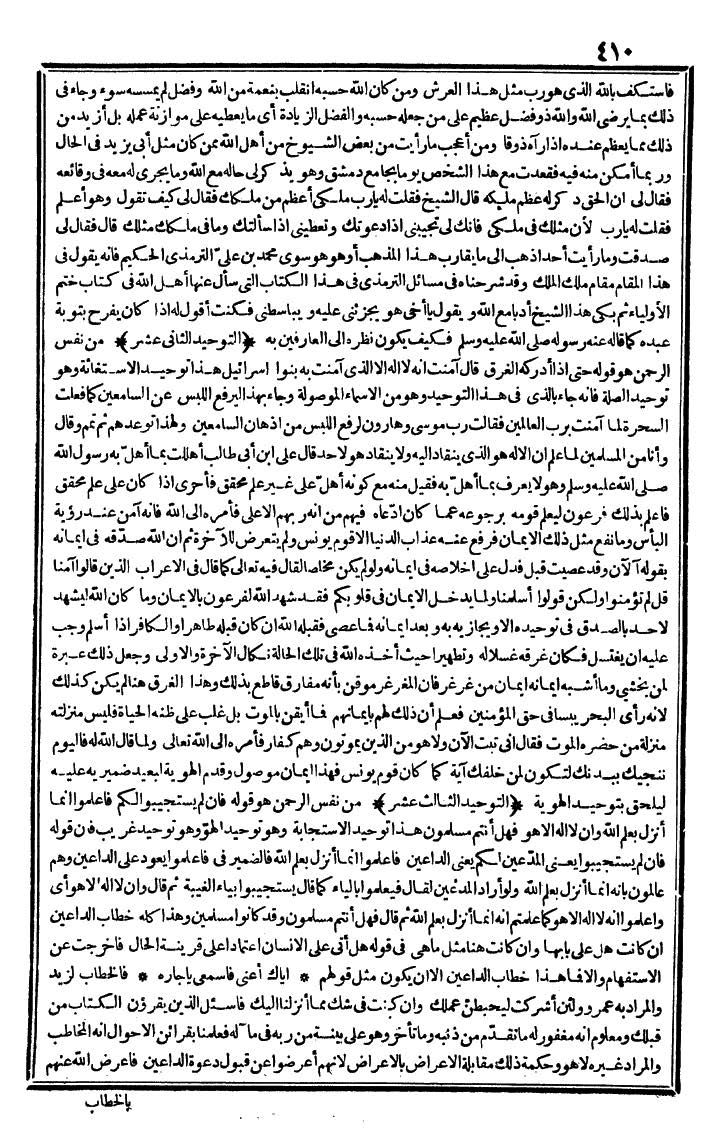 ٤١٠
فاستكف بالله الذى هو رب مثل هذا العرش ومن كان الله حسبه انقلب بنعمة من الله وفضل لم يمسسه سوء وجاء فى
ذلك بما يرضى الله والله ذو فضل عظيم على من جعله حسبه والفضل الزيادة أى ما يعطيه على موازنة عمله بل أزيد من
ذلك مما يعظم عنده اذا رآه ذوقا ومن أعجب ما رأيت من بعض الشيوخ من أهل الله ممن كان مثل أبى يزيد فى الحال
وربما أمكن منه فيه فقعدت مع هذا الشخص يوما بجامع دمشق وهو يذكر لى حاله مع الله وما يجرى له معه فى وقائعه
فقال لى ان الحق ذكر له عظم ملكه قال الشيخ فقلت له يا رب ملكى أعظم من ملكك فقال لى كيف تقول وهو أعلم
فقلت له يا رب لأن مثلك فى ملكى فانك لى تجيبنى اذا دعوتك وتعطينى اذا سألتك وما فى ملكك مثلك قال فقال لى
صدقت وما رأيت أحدا ذهب الى ما يقارب هذا المذهب أو هو هو سوى محمد بن على الترمذى الحكيم فانه يقول فى
هذا المقام مقام ملك الملك وقد شرحناه فى مسائل الترمذى فى هذا الكتاب التى سأل عنها أهل الله فى كتاب ختم
الأولياء ثم بكى هذا الشيخ أدبا مع الله ويقول يا أخى هو يجرئنى عليه ويباسطنى فكنت أقول له اذا كان يفرح بتوبة
عبده كما قاله عنه رسوله صلى الله عليه وسلم فكيف يكون نظره الى العارفين به ﴿التوحيد الثانى عشر﴾ من نفس
الرحمن هو قوله حتى اذا أدركه الغرق قال آمنت انه لا اله الا الذى آمنت به بنوا اسرائيل هذا توحيد الاستغاثة وهو
توحيد الصلة فانه جاء بالذى فى هذا التوحيد وهو من الاسماء الموصولة وجاء بهذا ليرفع اللبس عن السامعين كما فعلت
السحرة لما آمنت برب العالمين فقالت رب موسى وهارون لرفع اللبس من اذهان السامعين ولهذا توعدهم ثم تمم وقال
وأنا من المسلمين لما علم ان الاله هو الذى ينقاد اليه ولا ينقاد هو لاحد قال على ابن أبى طالب أهللت بما أهل به رسول الله
صلى الله عليه وسلم وهو لا يعرف بما أهل به فقبل منه مع كونه أهل على غير علم محقق فأحرى اذا كان على علم محقق
فاعلم بذلك فرعون ليعلم قومه برجوعه عما كان ادعاه فيهم من انه ربهم الاعلى فأمره الى الله فانه آمن عند رؤية
البأس وما نفع مثل ذلك الايمان فرفع عنه عذاب الدنيا الا قوم يونس ولم يتعرض للآخرة ثم ان الله صدقه فى ايمانه
بقوله آلآن وقد عصيت قبل فدل على اخلاصه فى ايمانه ولو لم يكن مخلصا لقال فيه تعالى كما قال فى الاعراب الذين قالوا آمنا
قل لم تؤمنوا ولكن قولوا أسلمنا ولما يدخل الايمان فى قلوبكم فقد شهد الله لفرعون بالايمان وما كان الله ليشهد
لاحد بالصدق فى توحيده الا ويجازيه به وبعد ايمانه فما عصى فقبله الله ان كان قبله طاهرا والكافر اذا أسلم وجب
عليه ان يغتسل فكان غرقه غسلا له وتطهيرا حيث أخذه الله فى تلك الحالة نكال الآخرة والاولى وجعل ذلك عبرة
لمن يخشى وما أشبه ايمانه ايمان من غرغر فان المغرغر موقن بأنه مفارق قاطع بذلك وهذا الغرق هنا لم يكن كذلك
لانه رأى البحر يبسا فى حق المؤمنين فعلم أن ذلك لهم بايمانهم فما أيقن بالموت بل غلب على ظنه الحياة فليس منزلته
منزلة من حضره الموت فقال انى تبت الآن ولا هو من الذين يموتون وهم كفار فأمره الى الله تعالى ولما قال الله له فاليوم
ننجيك ببدنك لتكون لمن خلفك آية كما كان قوم يونس فهذا ايمان موصول وقدم الهوية ليعيد ضمير به عليه
ليلحق بتوحيد الهوية ﴿التوحيد الثالث عشر﴾ من نفس الرحمن هو قوله فان لم يستجيبوا لكم فاعلموا انما
أنزل بعلم الله وان لا اله الا هو فهل أنتم مسلمون هذا توحيد الاستجابة وهو توحيد الهو وهو توحيد غريب فان قوله
فان لم يستجيبوا يعنى المدعين لكم يعنى الداعين فاعلموا انما أنزل بعلم الله فالضمير فى فاعلموا يعود على الداعين وهم
عالمون بانه انما أنزل بعلم الله ولو أراد المدعين لقال فيعلموا بالياء كما قال يستجيبوا بياء الغيبة ثم قال وان لا اله الا هو أى
واعلموا انه لا اله الا هو كما علمتم انه انما أنزل بعلم الله ثم قال فهل أنتم مسلمون وقد كانوا مسلمين وهذا كله خطاب الداعين
ان كانت هل على بابها وان كانت هنا مثل ما هى فى قوله هل أتى على الانسان اعتمادا على قرينة الحال فاخرجت عن
الاستفهام والا فما هذا خطاب الداعين الا ان يكون مثل قولهم * اياك أعنى فاسمعى ياجاره * فالخطاب لزيد
والمراد به عمرو ولئن أشركت ليحبطن عملك وان كنت فى شك مما أنزلنا اليك فاسئل الذين يقرؤن الكتاب من
قبلك ومعلوم انه مغفور له ما تقدم من ذنبه وما تأخر وهو على بينة من ربه فى ما له فعلمنا بقرائن الاحوال انه المخاطب
والمراد غيره لا هو وحكمة ذلك مقابلة الاعراض بالاعراض لانهم أعرضوا عن قبول دعوة الداعين فاعرض الله عنهم
بالخطاب